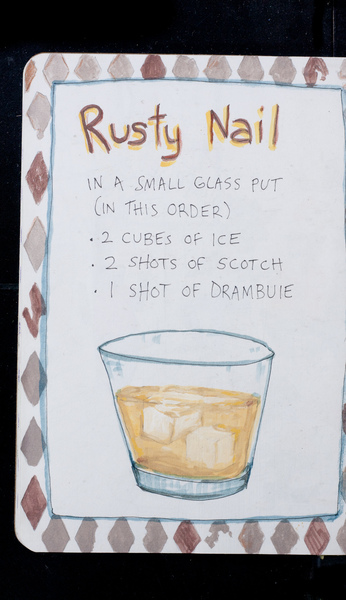 Rusty Nail
IN A SMALL GLASS PUT
(IN THIS ORDER)
• 2 CUBES OF ICE
• 2 SHOTS OF SCOTCH
• 1 SHOT OF DRAMBUIE